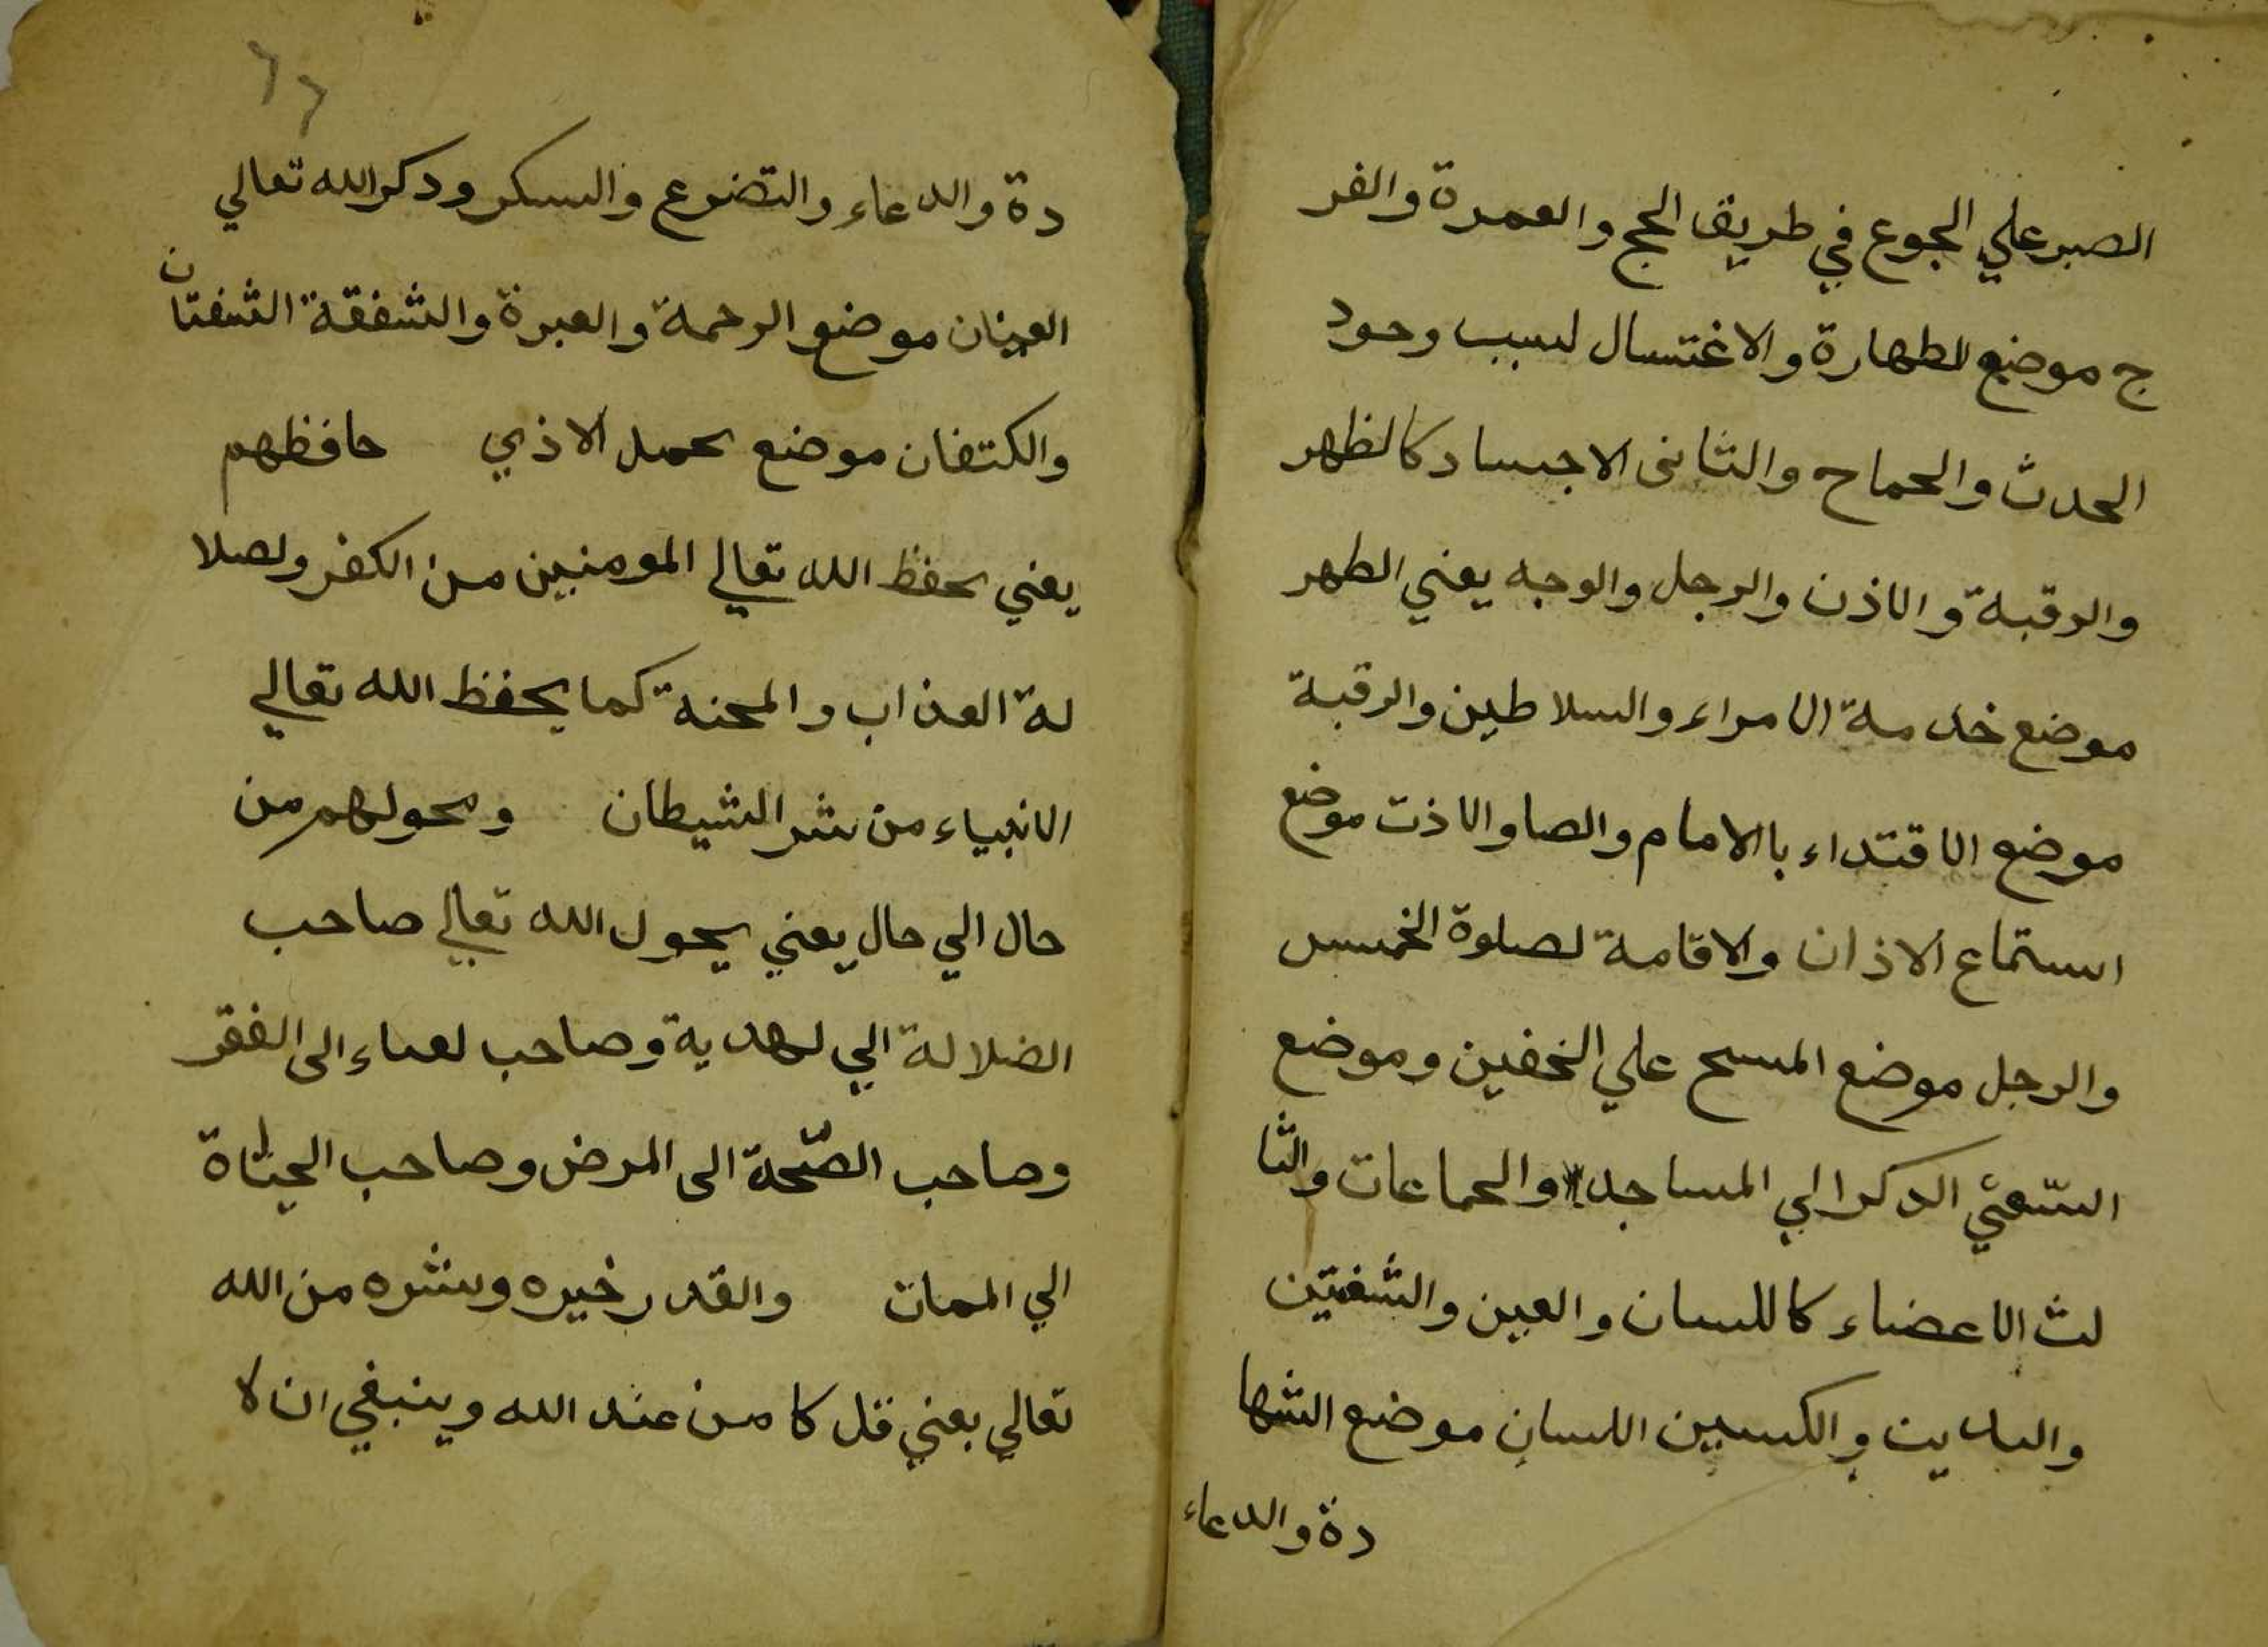 الصبر علي الجوع في طريق الحج والعمرة والفر
ج موضع لطهارة والاغتسال لسبب وجود
الحدث والجماح والثانى الاجساد كالظهر
والرقبة والاذن والرجل والوجه يعني الطهر
موضع خدمة الامراء والسلاطين والرقبة
موضع الاقتداء باالامام والصا والاذت موضع
استماع الاذان والاقامة لصلوة الخمس
والرجل موضع المسح علي الخفين وموضع
السّعي الدكر الي المساجد والجماعات والثا
لث الاعضاء كاللسان والعين والشفتين
واليديت والكسبين اللسان موضع الشها
دة والدعاء
٦٦
دة والدعاء والتضوع والسكر ودكرالله تعالي
العينان موضع الرحمة والعبرة والشفقة الشفتان
والكتفان موضع تحمل الاذي حافظهم
يعني يحفظ الله تعالي المومنين من الكفر ولصلا
لة العذاب والمحنة كما يحفظ الله تعالي
الانبياء من شر الشيطان ومحولهم من
حال الي حال يعني يحول الله تعالي صاحب
الضلالة الي لهدية وصاحب لغناء الى الفقر
وصاحب الصّحة الى المرض وصاحب الحياة
الي الممات والقدر خيره وشره من الله
تعالي يعني قل كا من عند الله وينبغي ان لا